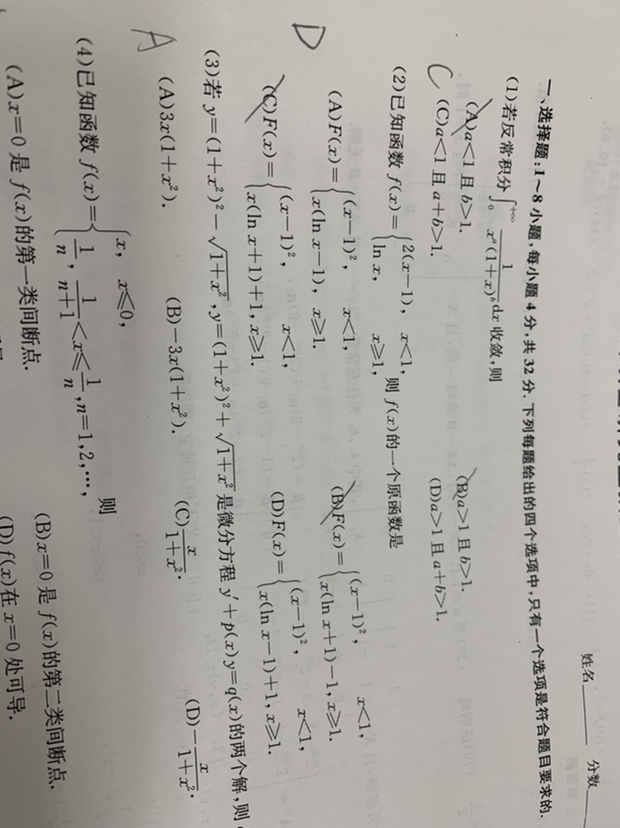 姓名______ 分数______
一、选择题:1～8小题,每小题4分,共32分.下列每题给出的四个选项中,只有一个选项是符合题目要求的.
(1)若反常积分∫₀^{+∞} 1/(x^a(1+x)^b) dx 收敛,则
(A)a<1且b>1. (B)a>1且b>1.
C (C)a<1且a+b>1. (D)a>1且a+b>1.
(2)已知函数 f(x)={2(x-1), x<1, ln x, x≥1, 则 f(x)的一个原函数是
(A)F(x)={(x-1)², x<1, x(ln x-1), x≥1. (B)F(x)={(x-1)², x<1, x(ln x+1)-1, x≥1.
D (C)F(x)={(x-1)², x<1, x(ln x+1)+1, x≥1. (D)F(x)={(x-1)², x<1, x(ln x-1)+1, x≥1.
(3)若 y=(1+x²)²-√(1+x²), y=(1+x²)²+√(1+x²) 是微分方程 y′+p(x)y=q(x)的两个解,则
A (A)3x(1+x²). (B)-3x(1+x²). (C)x/(1+x²). (D)-x/(1+x²).
(4)已知函数 f(x)={x, x≤0, 1/n, 1/(n+1)<x≤1/n, n=1,2,…, 则
(A)x=0 是 f(x)的第一类间断点. (B)x=0 是 f(x)的第二类间断点.
(D)f(x)在 x=0 处可导.